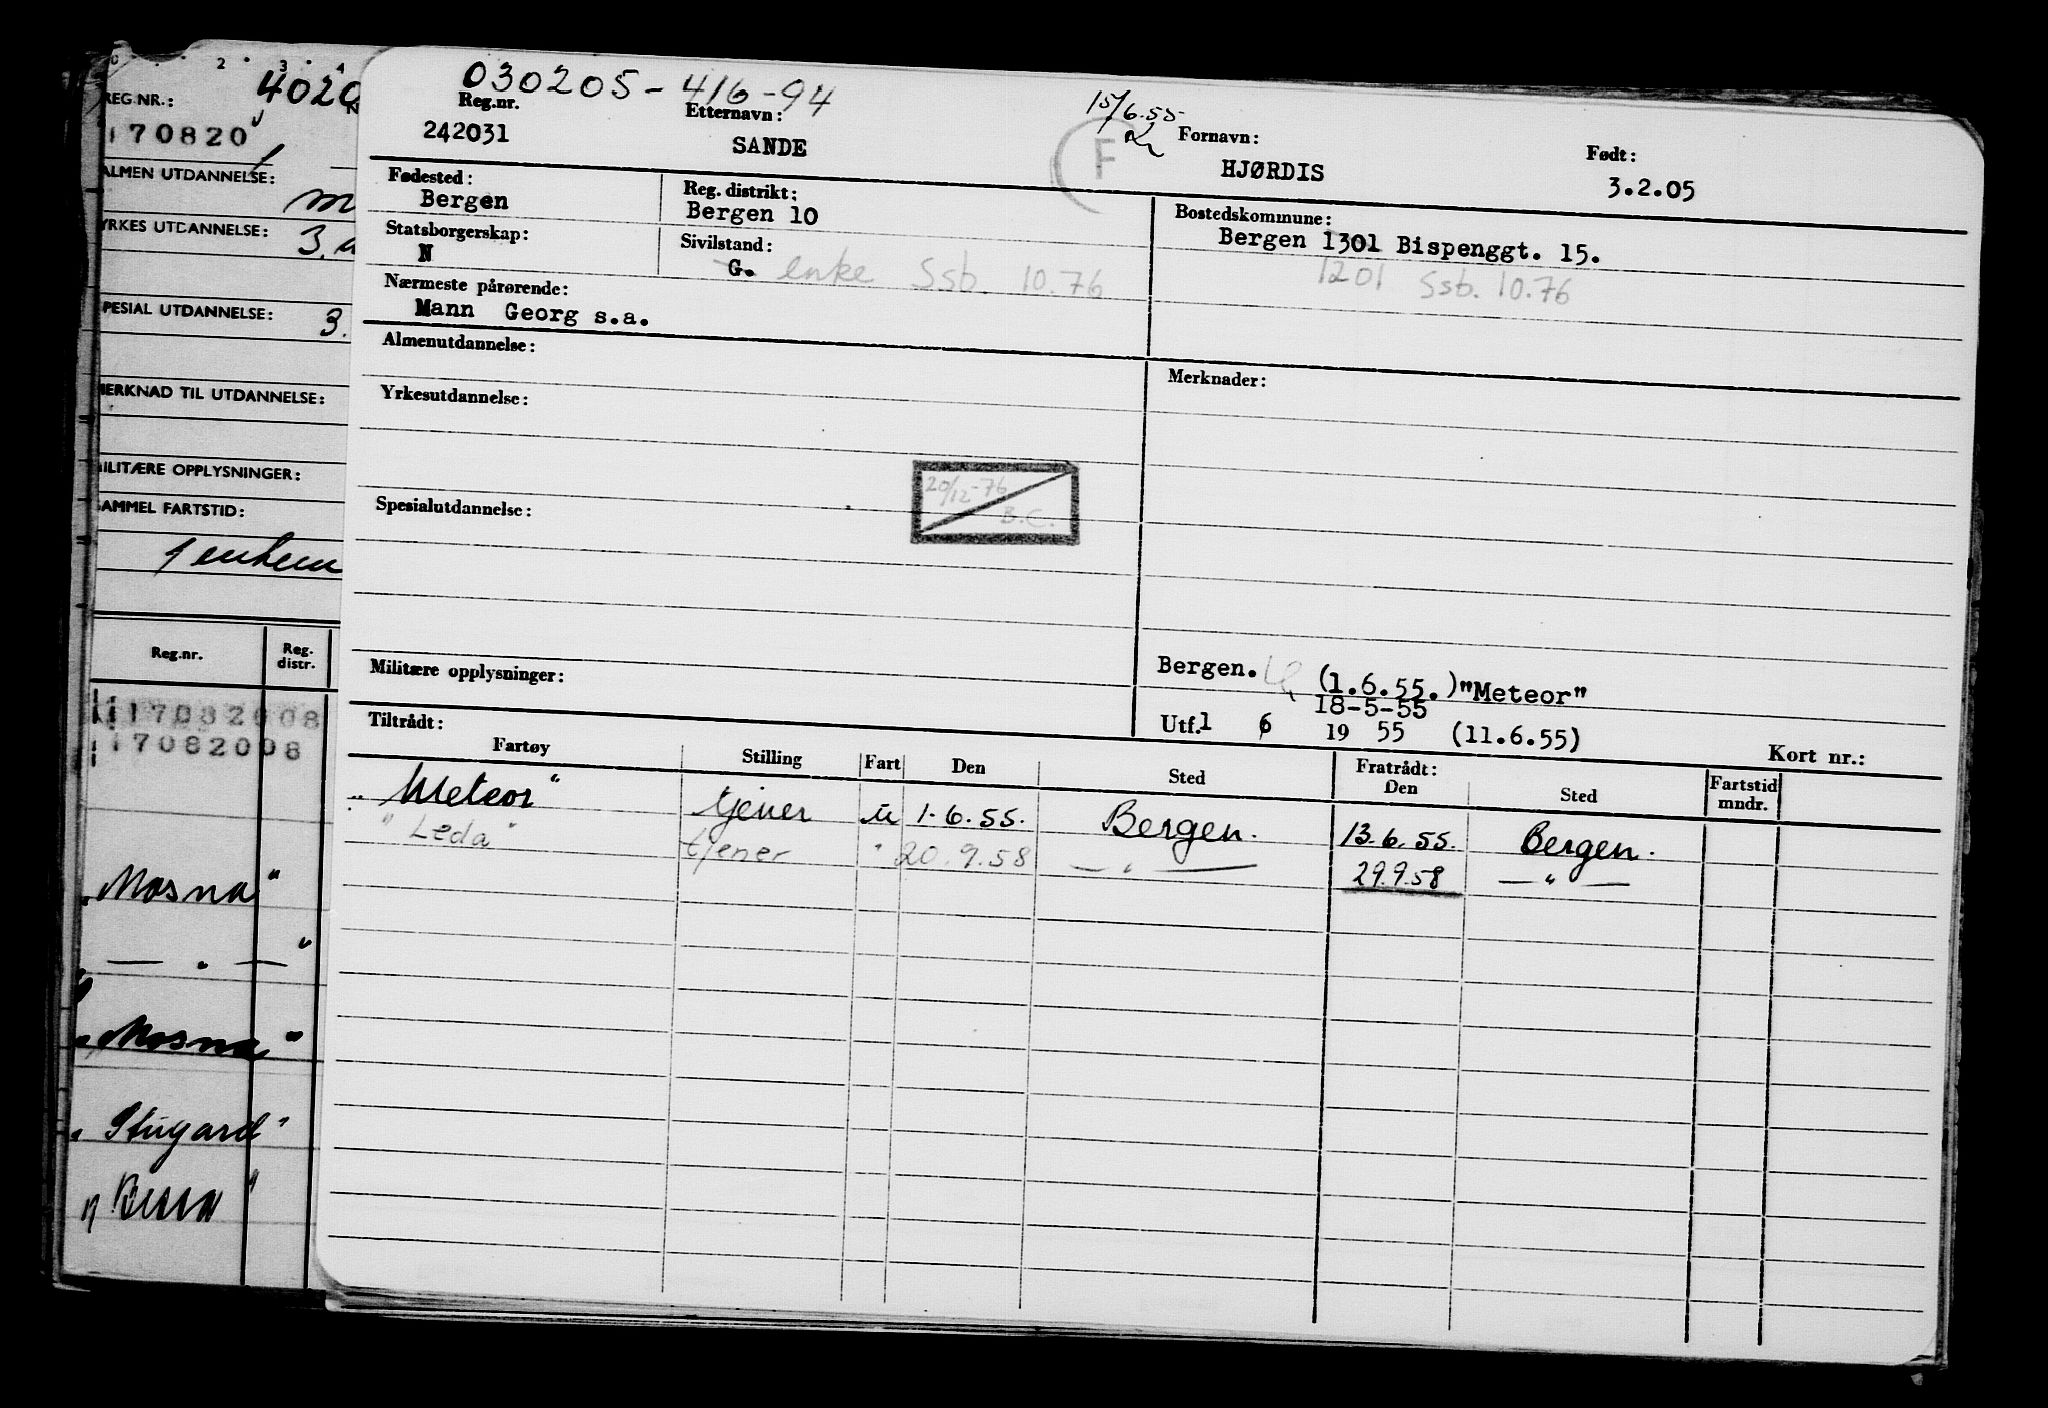 2 · 3 · 4
REG.NR.: 4020
170820
ALMEN UTDANNELSE:
YRKES UTDANNELSE:
3.
SPESIAL UTDANNELSE: 3.
MERKNAD TIL UTDANNELSE:
MILITÆRE OPPLYSNINGER:
SAMMEL FARTSTID:
Reg.nr. Reg. distr.
17082008
17082008
"Mosna"
— " — "
"Mosna"
"Stugard"
"Bessa"
030205-416-94
Reg.nr. Etternavn: 15/6.55 Fornavn: Født:
242031 SANDE F HJØRDIS 3.2.05
Fødested: Reg. distrikt: Bostedskommune:
Bergen Bergen 10 Bergen 1301 Bispenggt. 15.
Statsborgerskap: Sivilstand: 1201 Ssb. 10.76
N G. enke Ssb. 10.76
Nærmeste pårørende:
Mann Georg s.a.
Almenutdannelse: Merknader:
Yrkesutdannelse:
20/12-76
B.C.
Spesialutdannelse:
Militære opplysninger: Bergen. (1.6.55.)"Meteor"
18-5-55
Utf.1 6 19 55 (11.6.55)
Tiltrådt: Fratrådt: Kort nr.:
Fartøy Stilling Fart Den Sted Den Sted Fartstid mndr.
"Meteor" tjener u 1.6.55. Bergen. 13.6.55. Bergen.
"Leda" tjener " 20.9.58 — " — 29.9.58 — " —